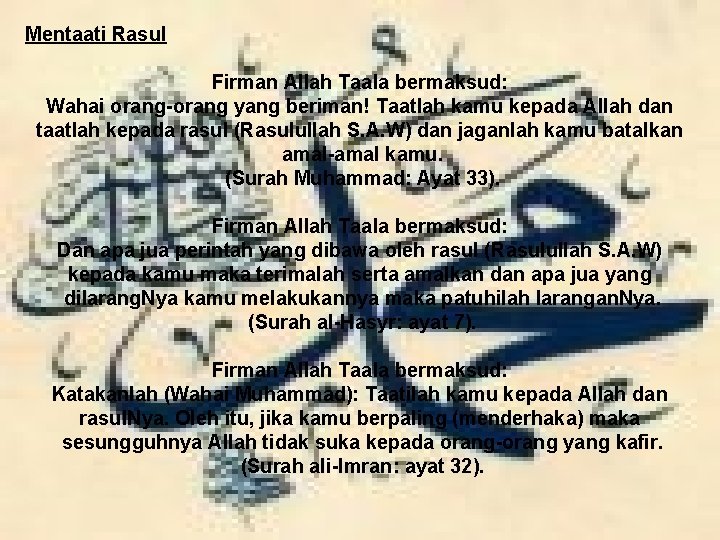 Mentaati Rasul
Firman Allah Taala bermaksud:
Wahai orang-orang yang beriman! Taatlah kamu kepada Allah dan
taatlah kepada rasul (Rasulullah S.A.W) dan jaganlah kamu batalkan
amal-amal kamu.
(Surah Muhammad: Ayat 33).
Firman Allah Taala bermaksud:
Dan apa jua perintah yang dibawa oleh rasul (Rasulullah S.A.W)
kepada kamu maka terimalah serta amalkan dan apa jua yang
dilarang.Nya kamu melakukannya maka patuhilah larangan.Nya.
(Surah al-Hasyr: ayat 7).
Firman Allah Taala bermaksud:
Katakanlah (Wahai Muhammad): Taatilah kamu kepada Allah dan
rasul.Nya. Oleh itu, jika kamu berpaling (menderhaka) maka
sesungguhnya Allah tidak suka kepada orang-orang yang kafir.
(Surah ali-Imran: ayat 32).